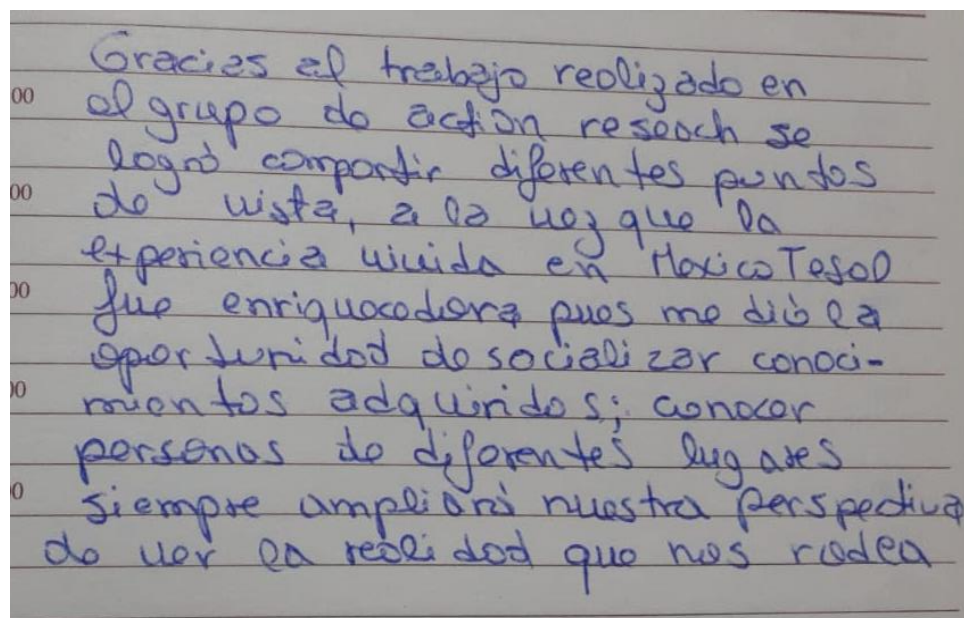 Gracias al trabajo realizado en
el grupo de action reseach se
logró compartir diferentes puntos
de vista, a la vez que la
experiencia vivida en Mexico Tesol
fue enriquecedora pues me dió la
oportunidad de socializar conoci-
mientos adquiridos; conocer
personas de diferentes lugares
siempre ampliará nuestra perspectiva
de ver la realidad que nos rodea